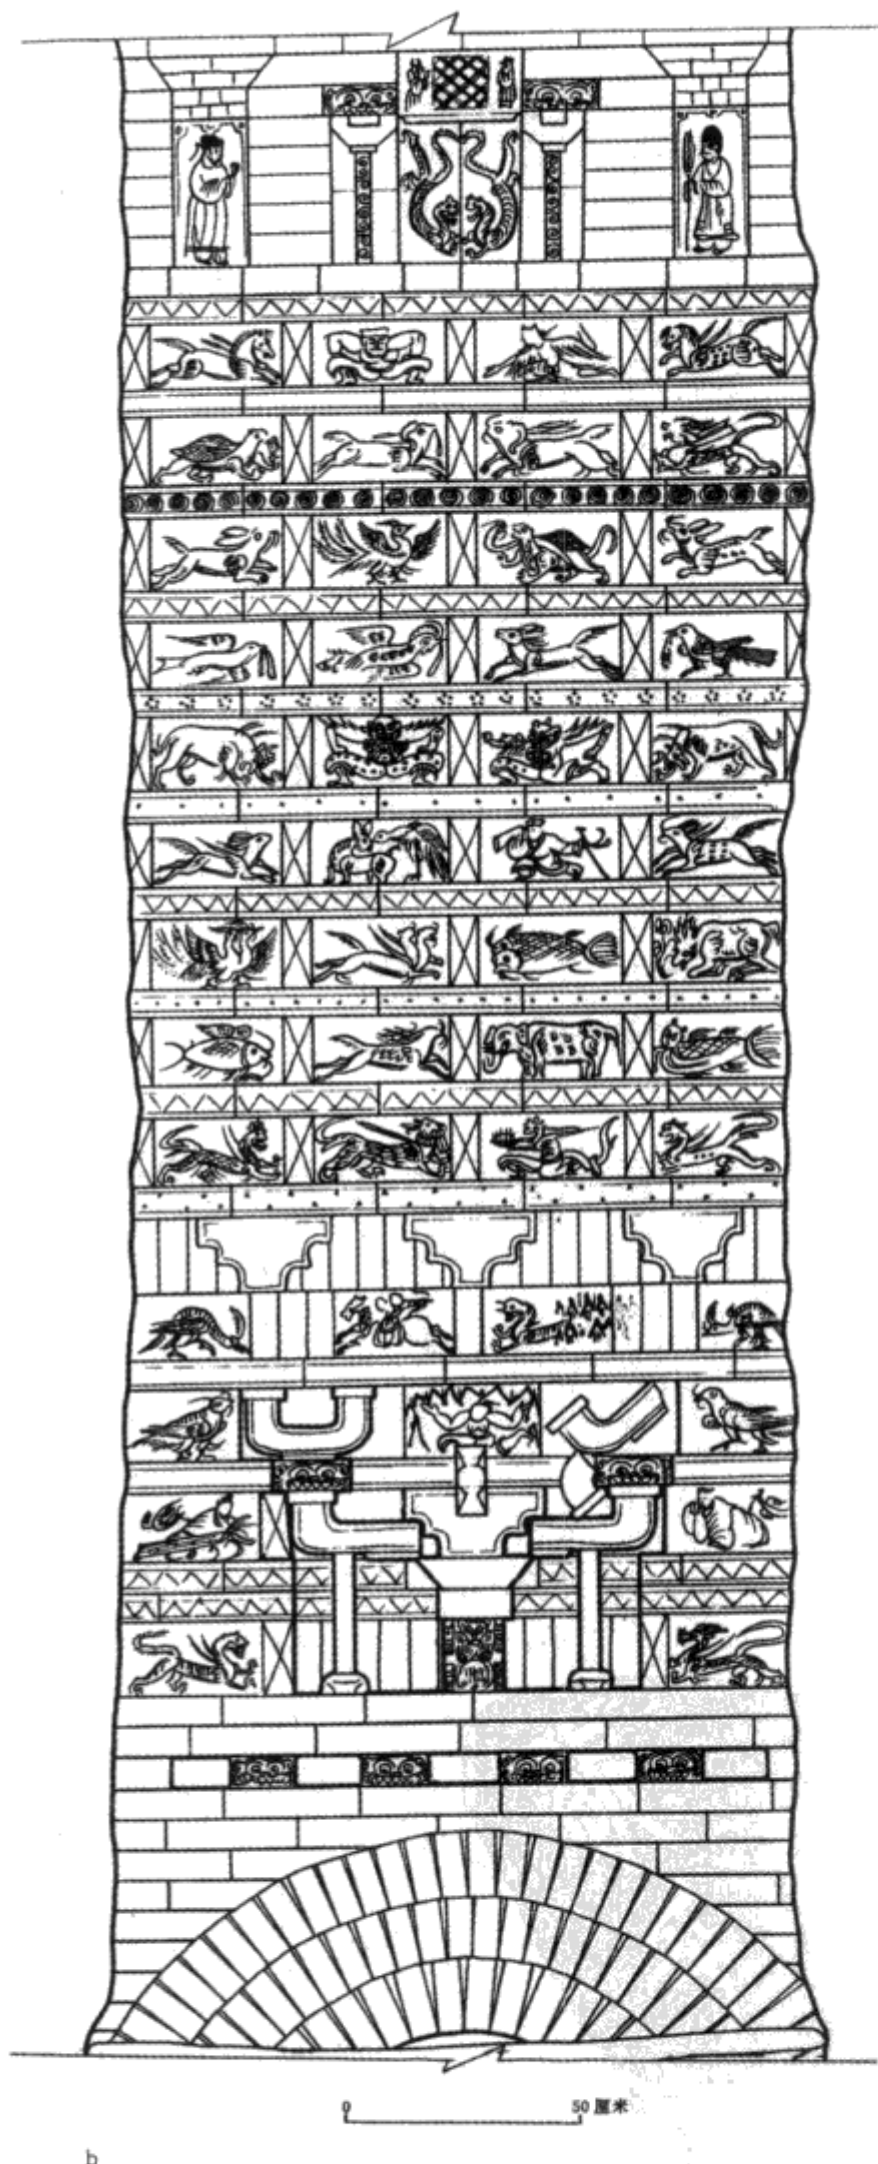 0 50厘米
b